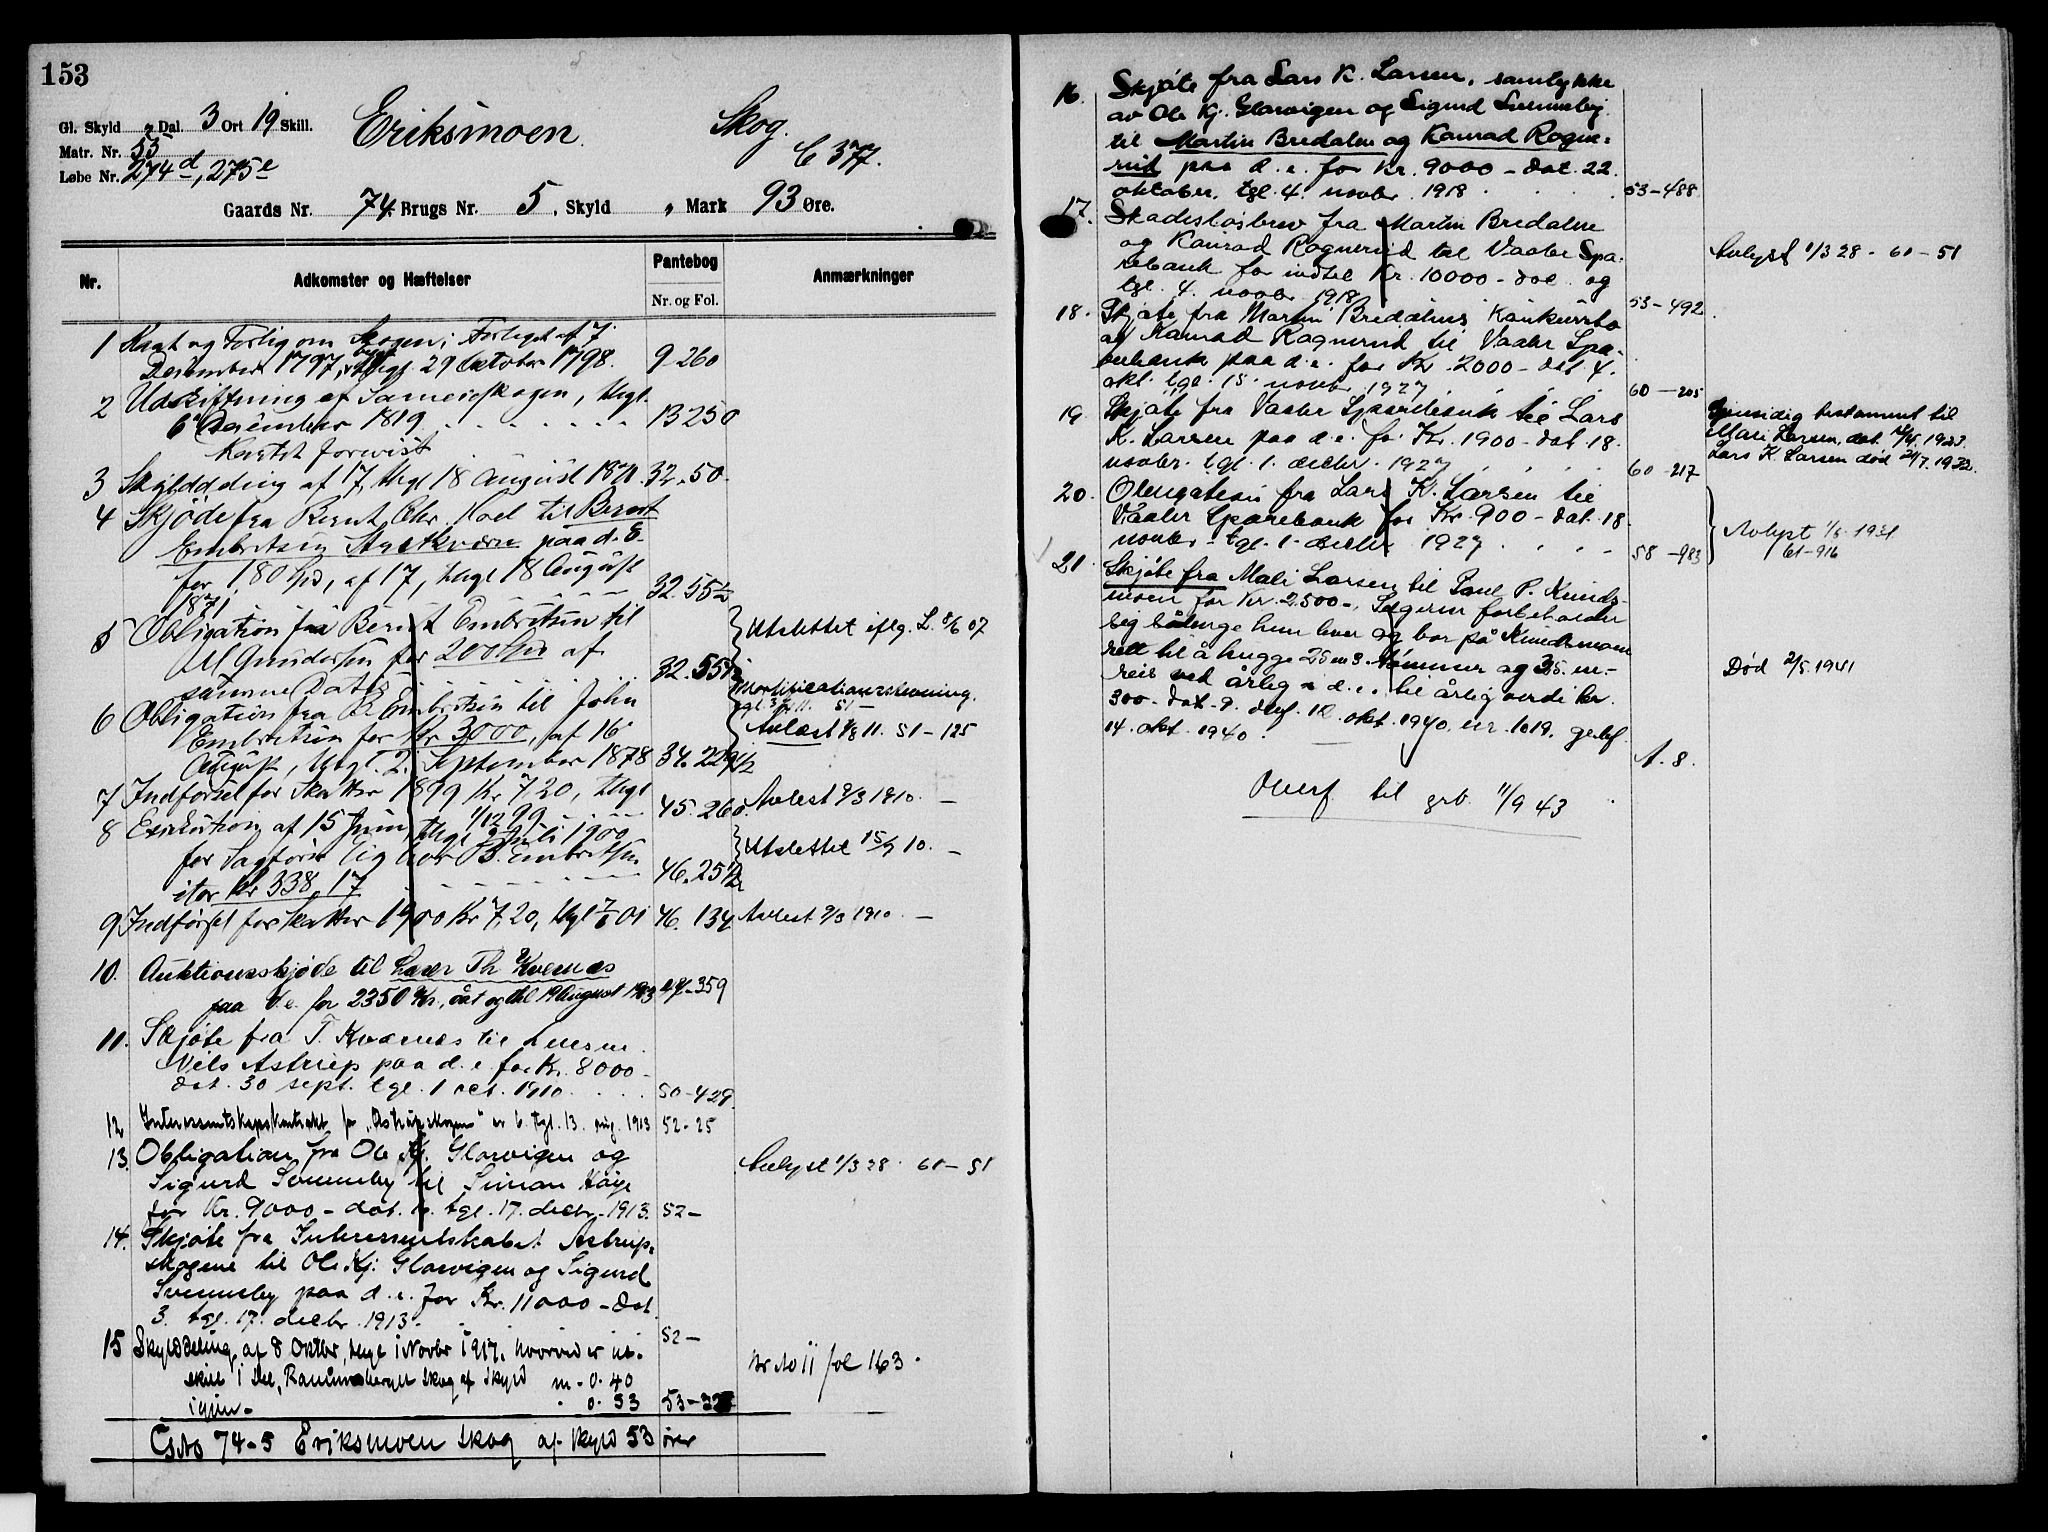 153
Gl. Skyld „ Dal. 3 Ort 19 Skill. Eriksmoen. Skog.
Matr. Nr. 55 C 377.
Løbe Nr. 274d, 275e
Gaards Nr. 74. Brugs Nr. 5, Skyld „ Mark 93 Øre.
Nr. Adkomster og Hæftelser Pantebog Anmærkninger
Nr. og Fol.
1 og Forlig om Skogen, Forliget af 7
Desember 1797, thlgt 29 Oktober 1798. 9-260
2 Udskiftning af Sameieskogen, thlgt.
6 Desember 1819 13 250
Kartet forevist
3 Skylddeling af 17, thlgt 18 August 1871. 32.50.
4 Skjøde fra Bernt Chr. Koel til Bernt
Embretsen paa d. E.
for 180 Spd, af 17, thlgt 18 August
1871 32.55½
5 Obligation fra Bernt Embretsen til Utslettet iflg. L. 8/6 07
M Gundersen for 200 Spd af
samme Dato 32.55
6 Obligation fra B. Embretsen til John Mortificationsstevning.
Embretsen for Kr 3000, af 16 Avlæst 1/8 11. 51-125
August, thlgt. 2. September 1878 34.229½
7 Indførsel for Skatter 1899 Kr 7,20, thlgt
1/12 99 45.260. Avlest 9/3 1910. —
8 Exekution af 15 Juni, thlgt 2 Juli 1900
for Sagfører hos B. Embretsen Utslettet 15/9 10. —
stor Kr 338,17 46.25½
9 Indførsel for Skatter 1900 Kr 7,20, thlgt 7/6 01 46.134 Avlest 9/3 1910. —
10. Auktionsskjøde til Lars Th Kvernæs
paa d.e. for 2350 Kr, dat og thl 19 August 1903 47-359
11. Skjøte fra T. Kvernæs til Lensm.
Nils Astrup paa d. e. for Kr. 8000 -
dat. 30 sept. tgl. 1 oct. 1910 50-429.
12 Interessentskapskontrakt for „Astrupskogene" tgl. 13. aug. 1913 52-25
13. Obligation fra Ole Kj. Glorvigen og Avlyst 1/3 28. 61-51
Sigurd Svenneby til Simon Høye
for Kr. 9000 - dat. tgl. 17. decbr. 1913. 52-
14. Skjøte fra Interessentskabet Astrup-
skogene til Ole Kj. Glorvigen og Sigurd
Svenneby paa d. e. for Kr. 11000 - dat
3. tgl. 17. decbr. 1913. 52-
15 Skylddeling af 8 Oktbr, thlgt 1 Novbr 1917, hvorved er ut-
skilt 1 Del, skog af Skyld m - 0.40 Br No 11 fol 163.
igjen - 0.53 53-
No 74-5 Eriksmoen skog af skyld 53 ører
16. Skjøte fra Lars K. Larsen, samtykke
av Ole Kj. Glorvigen og Sigurd Svenneby
til Martin Bredalen og Konrad Rogne-
rud paa d. e. for Kr. 9000 - dat. 22.
oktober, tgl. 4. novbr. 1918 53-488.
17. Skadesløsbrev fra Martin Bredalen
og Konrad Rognerud til Vaaler Spa- Avlyst 1/3 28 - 61-51
rebank for indtil Kr. 10000 - dat. og
tgl. 4. novbr. 1918 53-492.
18. Skjøte fra Martin Bredalens Konkursbo
og Konrad Rognerud til Vaaler Spa-
rebank paa d. e. for Kr. 2000 - dat. 4.
okt. tgl. 15. novbr. 1927 60-205
19. Skjøte fra Vaaler Sparebank til Lars Gjensidig testament til
K. Larsen paa d. e. for Kr. 1900 - dat. 18. Mali Larsen, dat.
novbr. tgl. 1. decbr. 1927 60-217 Lars K. Larsen død 21/7. 1932.
20. Obligation fra Lars K. Larsen til
Våaler Sparebank for Kr. 900 - dat. 18 Avlyst 1/5. 1931
novbr. tgl. 1. decbr. 1927 58-983 61-916
21. Skjøte fra Mali Larsen til Paul P. Kunds-
moen for Kr. 2500 -. Selgeren forbeholder
sig sålænge hun lever og bor på Kundsmoen
rett til å hugge 25 m3 tømmer og 35 m. Død 2/5. 1941
reis ved årlig i d. e. til årlig verdi kr.
300 - dat. 9. dagf. 12. okt. 1940. nr. 1019.
14. okt. 1940. A. 8.
Overf. til grb. 11/9 43